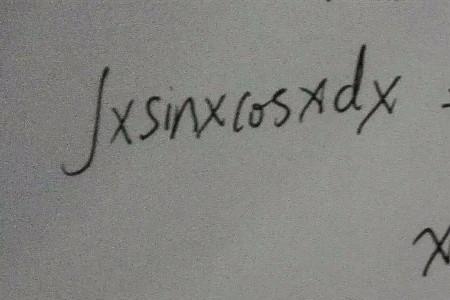 ∫xsinxcosxdx =
x